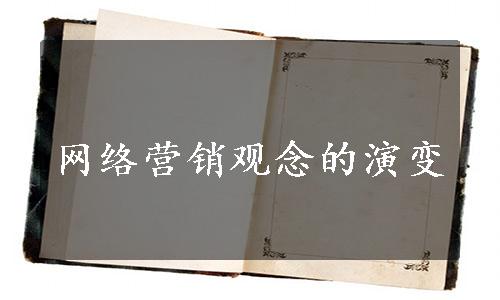 网络营销观念的演变